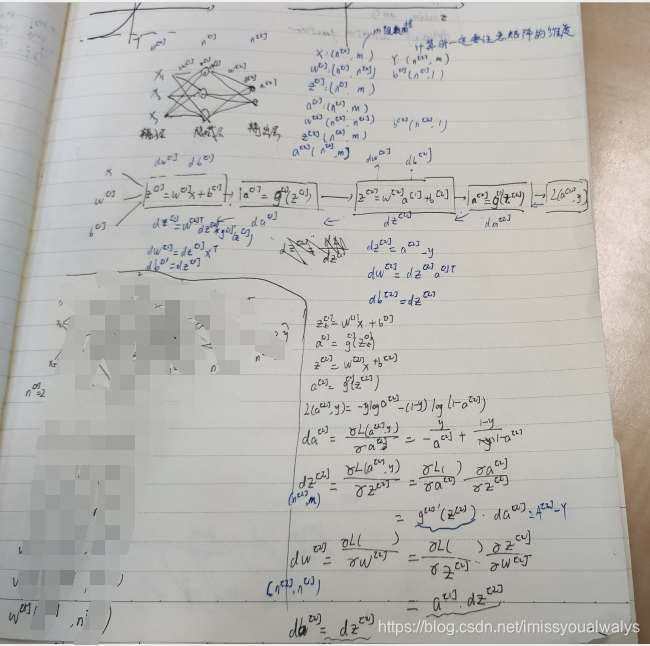 z
计算时一定要注意矩阵的维度
n^[0] n^[1] n^[2]
X:(n^[0], m) Y:(n^[2], m)
w^[1]:(n^[1], n^[0]) b^[1](n^[1], 1)
z^[1]:(n^[1], m)
a^[1]:(n^[1], m)
w^[2](n^[2], n^[1]) b^[2](n^[2], 1)
z^[2](n^[2], m)
a^[2](n^[2], m)
x₁
x₂
x₃
输入层 隐藏层 输出层
dw^[1] db^[1] dw^[2] db^[2]
x
w^[1]
b^[1]
z^[1]=w^[1]x+b^[1] a^[1]=g^[1](z^[1]) z^[2]=w^[2]a^[1]+b^[2] a^[2]=g^[2](z^[2]) L(a^[2],y)
da^[1] dz^[2] da^[2]
dz^[1]=w^[2]T dz^[2]*g^[1]'(z^[1])
dw^[1]=dz^[1]x^T
db^[1]=dz^[1]
dz^[2]=a^[2]-y
dw^[2]=dz^[2]a^[1]T
db^[2]=dz^[2]
n^[0]=2
z^[1]=w^[1]x+b^[1]
a^[1]=g^[1](z^[1])
z^[2]=w^[2]x+b^[2]
a^[2]=g^[2](z^[2])
L(a^[2],y)=-yloga^[2]-(1-y)log(1-a^[2])
da^[2]=γL(a^[2],y)/γa^[2]=-y/a^[2]+(1-y)/(1-a^[2])
dz^[2]=γL(a^[2],y)/γz^[2]=γL( )/γa^[2]·γa^[2]/γz^[2]
(n^[2],m)
=g^[2]'(z^[2])·da^[2]=A^[2]-Y
dw^[2]=γL( )/γw^[2]=γL( )/γz^[2]·γz^[2]/γw^[2]
(n^[2],n^[1])
=a^[1]·dz^[2]
db^[2]=dz^[2]
https://blog.csdn.net/imissyoualwalys